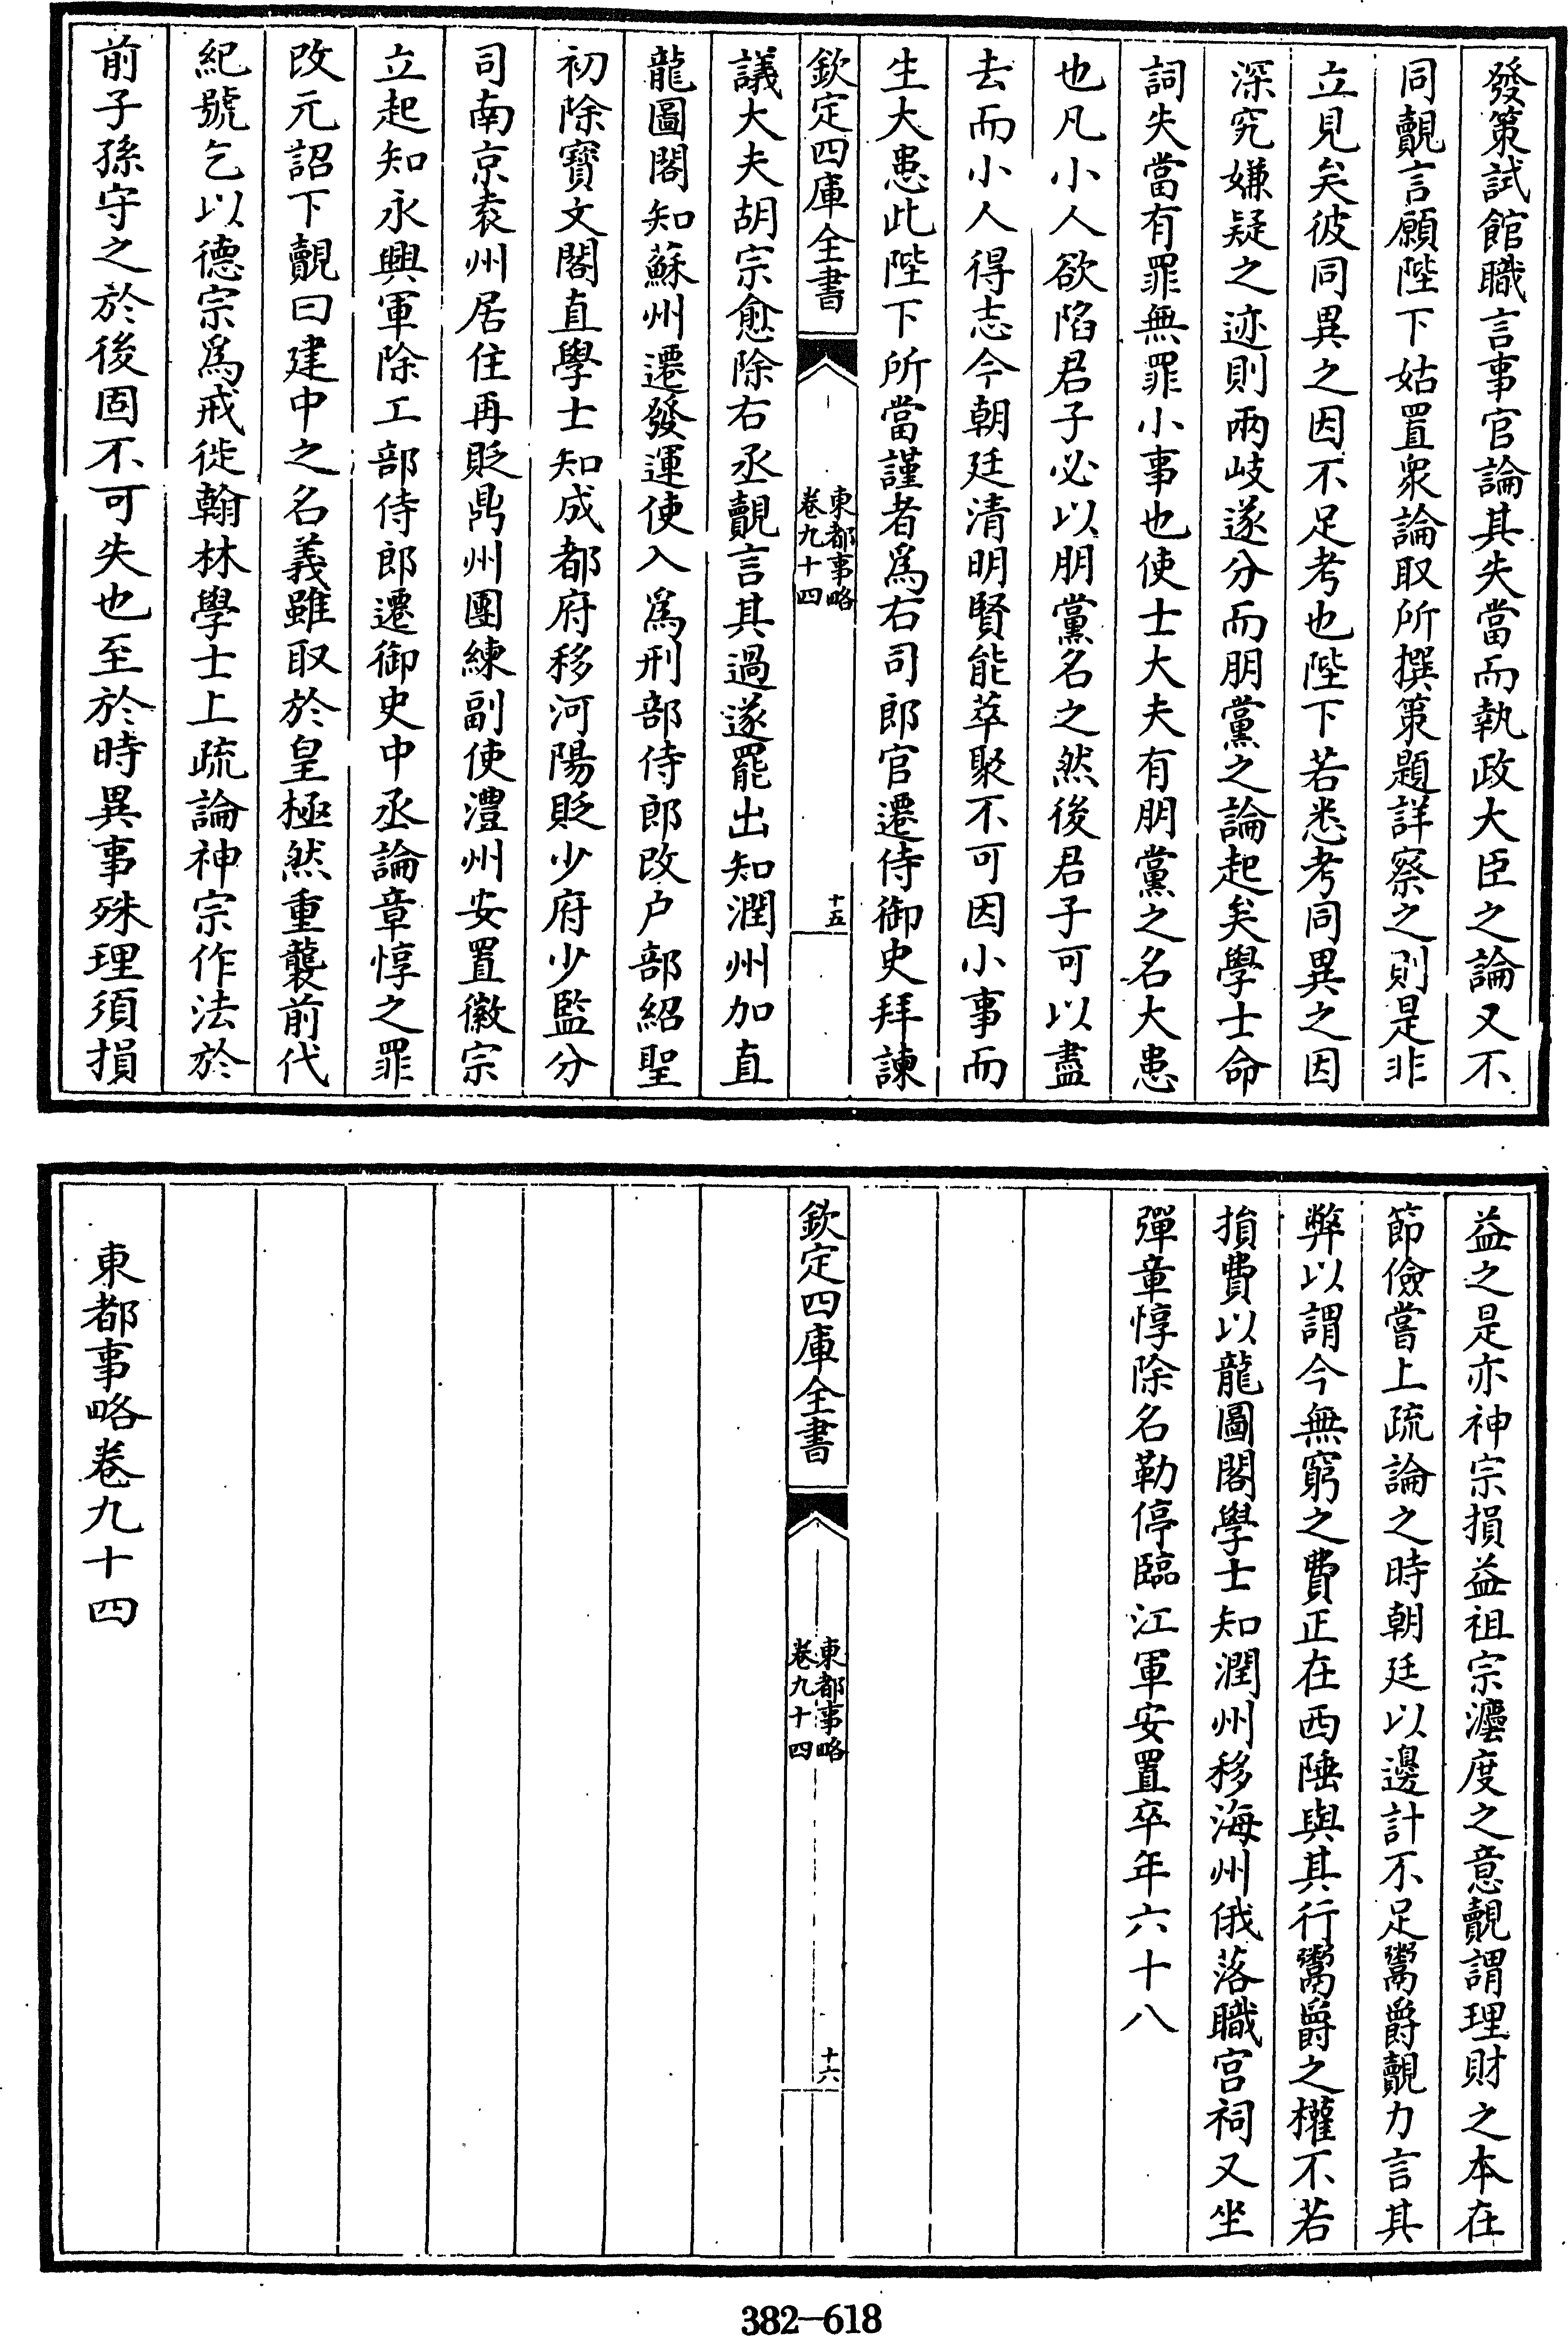 發策試館職言事官論其失當而執政大臣之論又不
同覿言願陛下姑置衆論取所撰策題詳察之則是非
立見矣彼同異之因不足考也陛下若悉考同異之因
深究嫌疑之迹則兩岐遂分而朋黨之論起矣學士命
詞失當有罪無罪小事也使士大夫有朋黨之名大患
也凡小人欲陷君子必以朋黨名之然後君子可以盡
去而小人得志今朝廷清明賢能萃聚不可因小事而
生大患此陛下所當謹者為右司郎官遷侍御史拜諫
欽定四庫全書
東都事略
卷九十四
十五
議大夫胡宗愈除右丞覿言其過遂罷出知潤州加直
龍圖閣知蘇州遷發運使入為刑部侍郎改户部紹聖
初除寶文閣直學士知成都府移河陽貶少府少監分
司南京袁州居住再貶鼎州團練副使澧州安置徽宗
立起知永興軍除工部侍郎遷御史中丞論章惇之罪
改元詔下覿曰建中之名義雖取於皇極然重襲前代
紀號乞以德宗為戒徙翰林學士上疏論神宗作法於
前子孫守之於後固不可失也至於時異事殊理須損
益之是亦神宗損益祖宗灋度之意覿謂理財之本在
節儉嘗上疏論之時朝廷以邊計不足鬻爵覿力言其
弊以謂今無窮之費正在西陲與其行鬻爵之權不若
損費以龍圖閣學士知潤州移海州俄落職宫祠又坐
彈章惇除名勒停臨江軍安置卒年六十八
欽定四庫全書
東都事略
卷九十四
十六
東都事略卷九十四
382-618